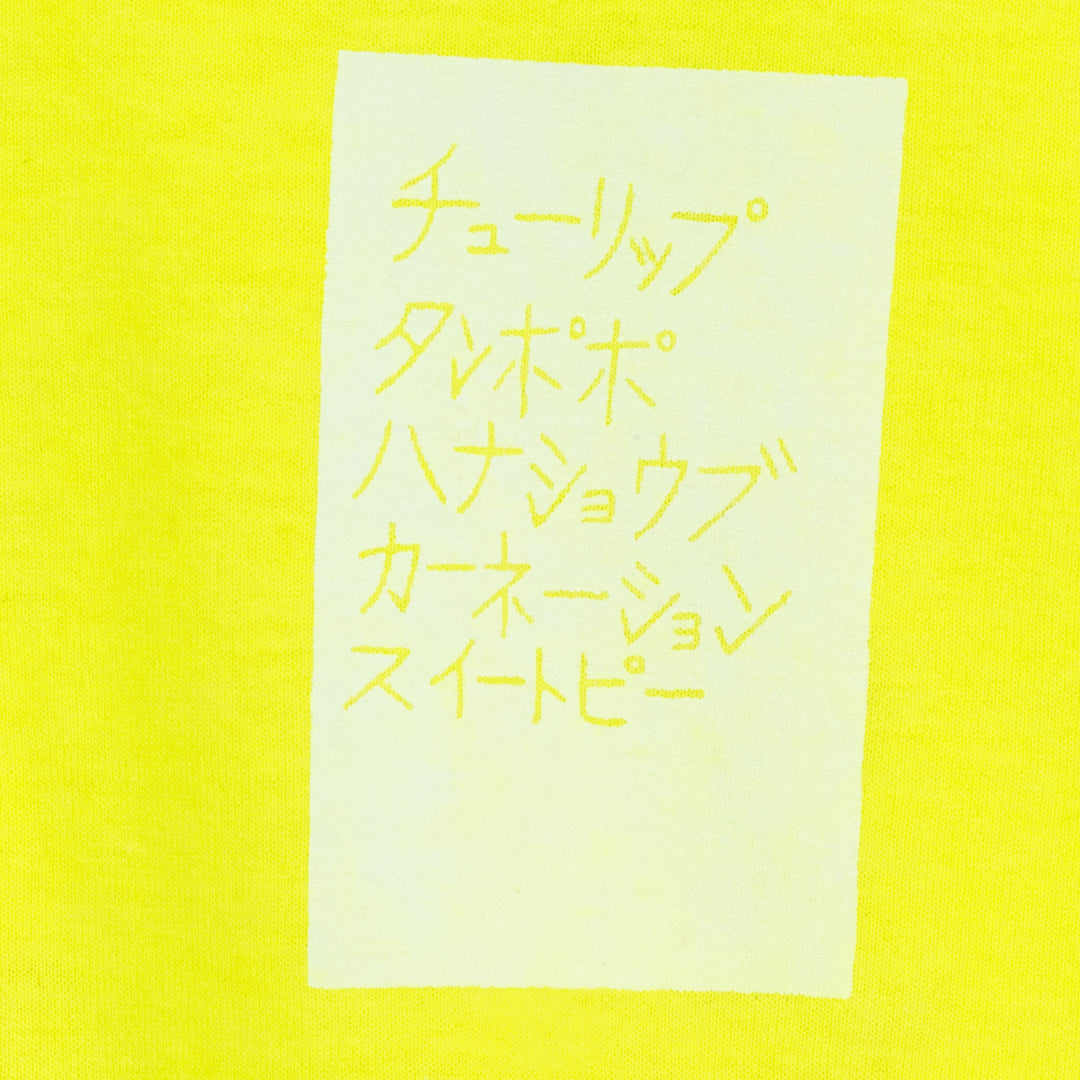 チューリップ
タンポポ
ハナショウブ
カーネーション
スイートピー